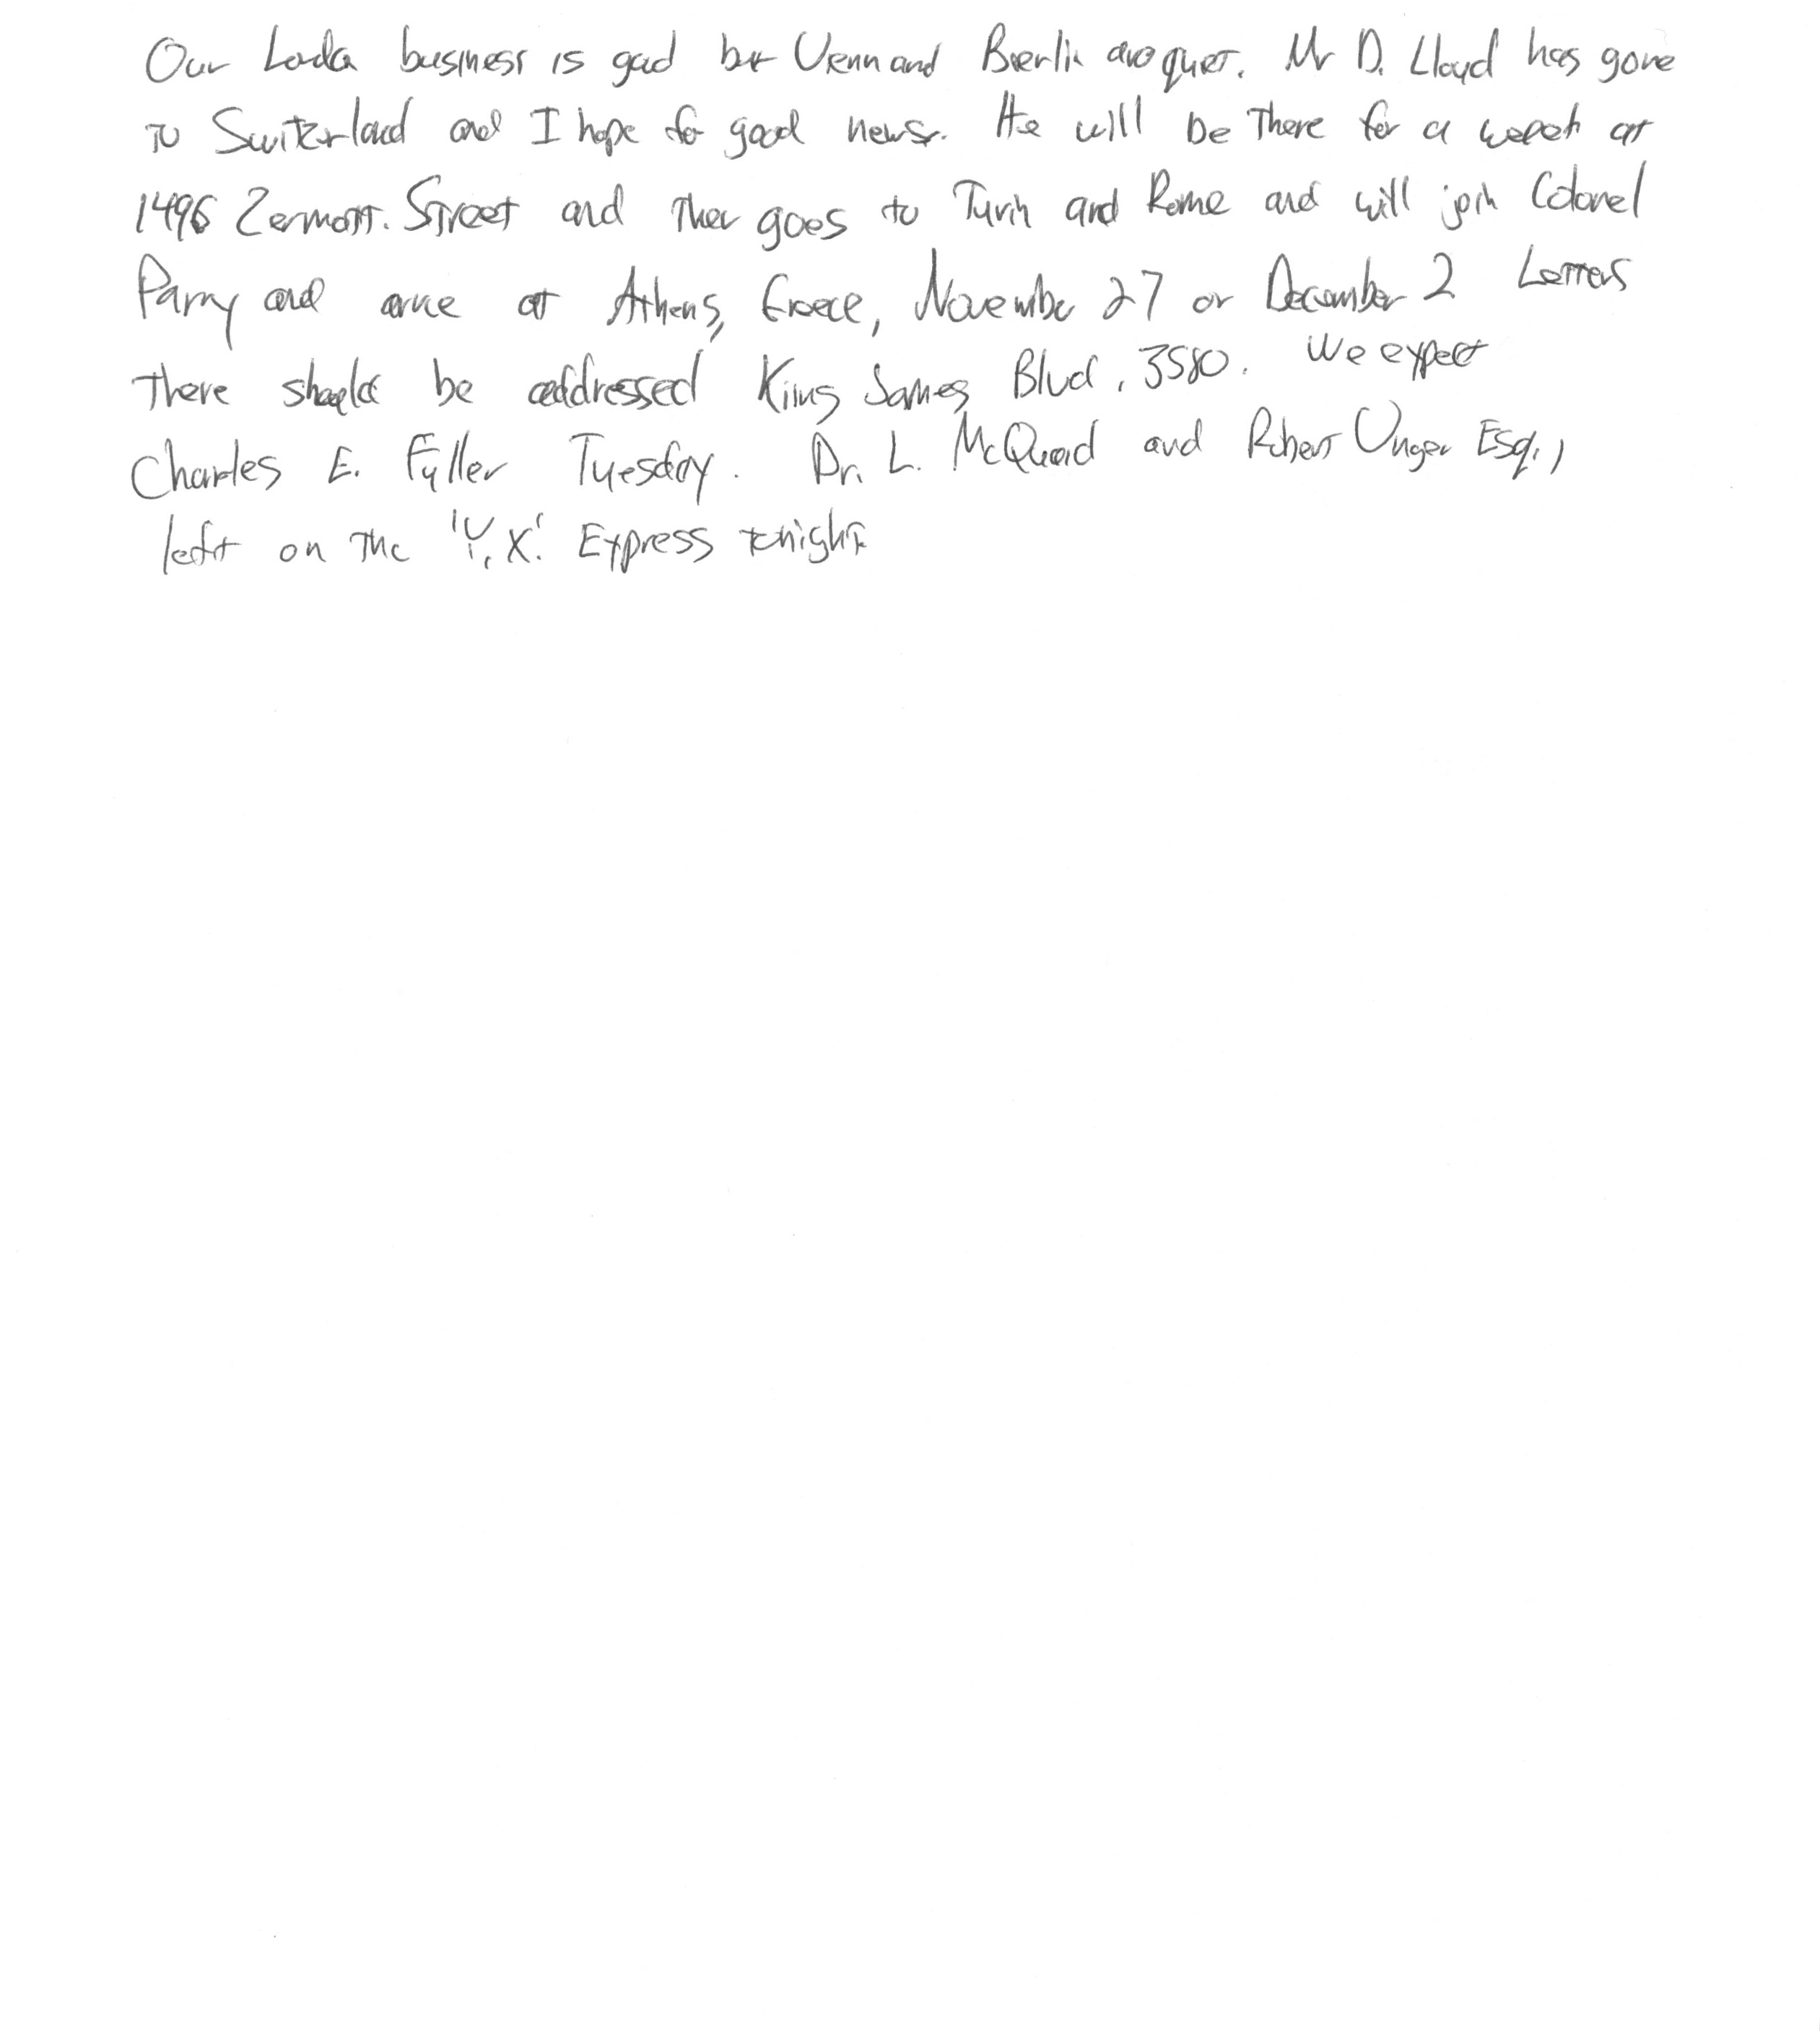 Our London business is good but Vienna and Berlin are quiet. Mr D. Lloyd has gone
to Switzerland and I hope for good news. He will be there for a week at
1496 Zermott. Street and then goes to Turin and Rome and will join Colonel
Parry and arrive at Athens, Greece, November 27 or December 2 Letters
there should be addressed King James Blvd, 3580. We expect
Charles E. Fuller Tuesday. Dr. L. McQuaid and Robert Unger Esq.,
left on the 'Y.X.' Express tonight.